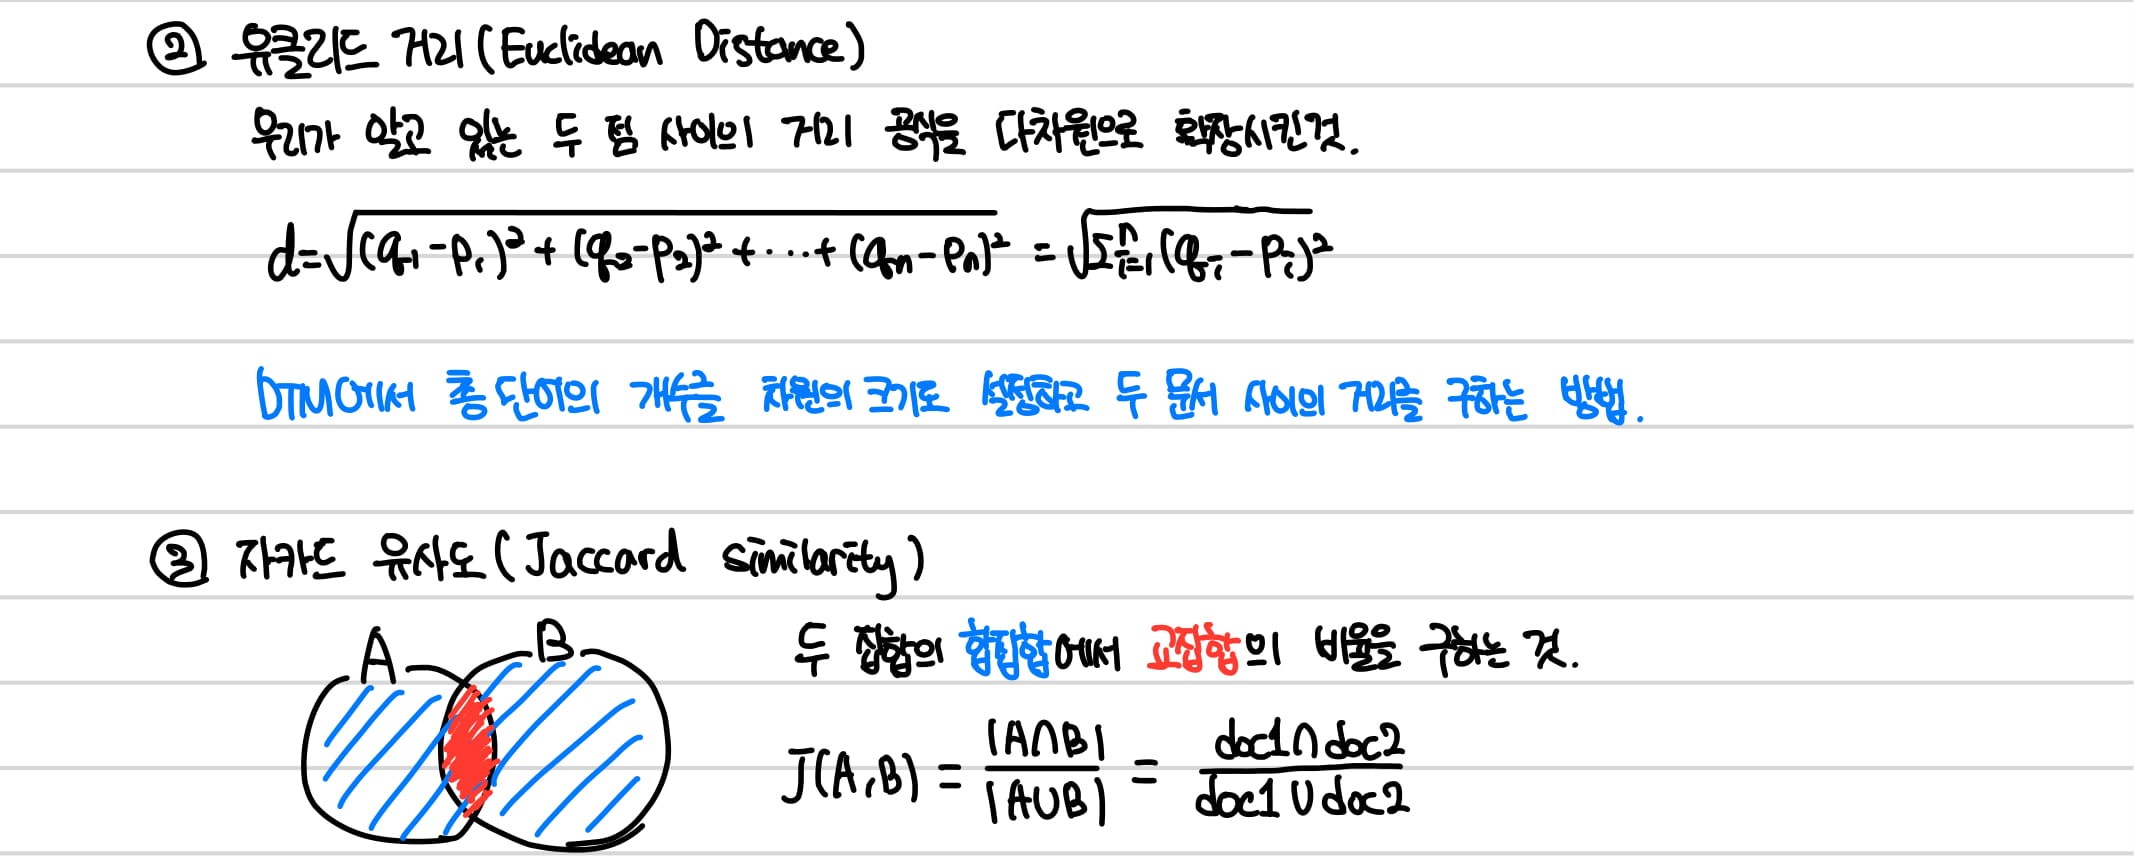 ② 유클리드 거리(Euclidean Distance)
우리가 알고 있는 두 점 사이의 거리 공식을 다차원으로 확장시킨것.
d=√(q₁-p₁)²+(q₂-p₂)²+⋯+(qₙ-pₙ)² = √Σⁿᵢ₌₁(qᵢ-pᵢ)²
DTM에서 총 단어의 개수를 차원의 크기로 설정하고 두 문서 사이의 거리를 구하는 방법.
③ 자카드 유사도(Jaccard similarity)
A B
두 집합의 합집합에서 교집합의 비율을 구하는 것.
J(A,B) = |A∩B| / |A∪B| = doc1∩doc2 / doc1∪doc2